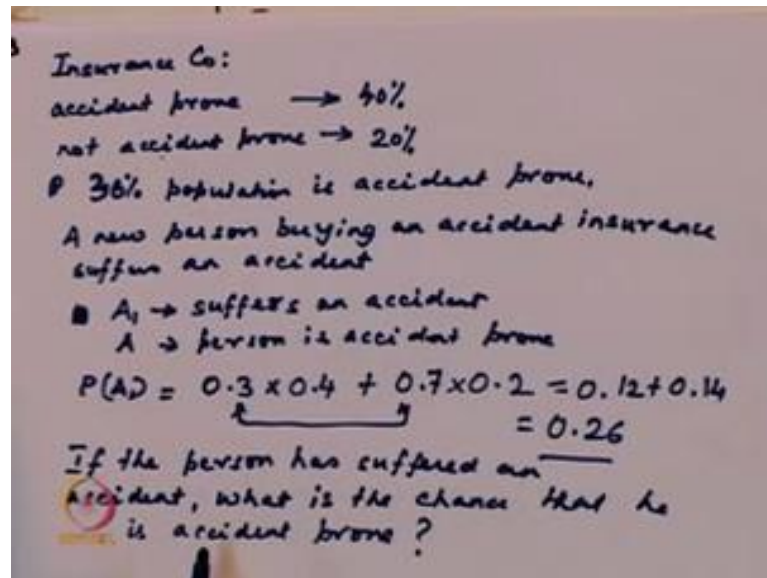 Insurance Co:
accident prone → 40%
not accident prone → 20%
30% population is accident prone.
A new person buying an accident insurance
suffers an accident
A₁ → suffers an accident
A → person is accident prone
P(A₁) = 0.3 x 0.4 + 0.7 x 0.2 = 0.12 + 0.14
= 0.26
If the person has suffered an
accident, what is the chance that he
is accident prone ?